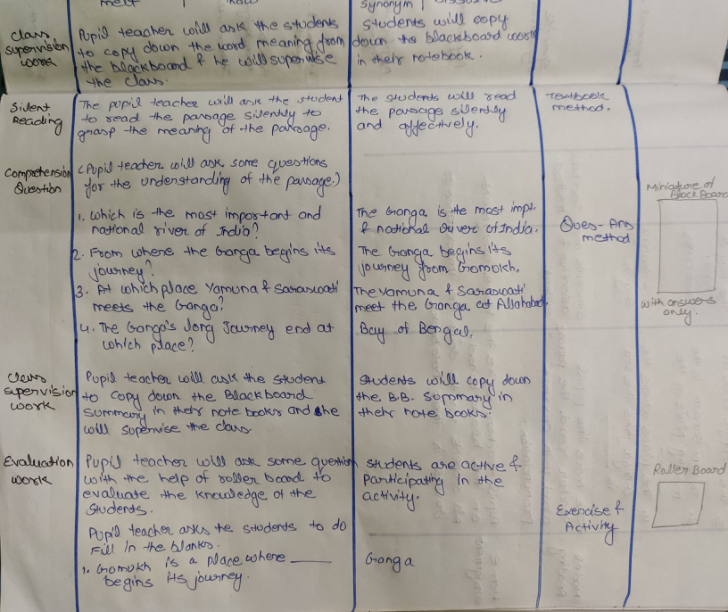 melt
synonym
Class supervision work
Pupil teacher will ask the students
to copy down the word meaning from
the blackboard & he will supervise
the class.
students will copy
down the blackboard work
in their notebook.
Silent Reading
The pupil teacher will ask the student
to read the passage silently to
grasp the meaning of the passage.
The students will read
the passage silently
and effectively.
Textbook
method.
Comprehension
Question
(Pupil teacher will ask some questions
for the understanding of the passage.)
1. Which is the most important and
national river of India?
The Ganga is the most impt.
& national River of India.
Ques-Ans
method
Miniature of
Black Board
with answers
only.
2. From where the Ganga begins its
journey?
The Ganga begins its
journey from Gomukh.
3. At which place Yamuna & Saraswati
meets the Ganga?
The Yamuna & Saraswati
meet the Ganga at Allahabad.
4. The Ganga's long Journey end at
which place?
Bay of Bengal.
Class
supervision
work
Pupil teacher will ask the student
to copy down the Blackboard
Summary in their note books and she
will supervise the class
students will copy down
the B.B. Summary in
their note books.
Evaluation
work
Pupil teacher will ask some question
with the help of roller board to
evaluate the knowledge of the
students.
students are active &
Participating in the
activity.
Exercise &
Activity
Roller Board
Pupil teacher asks the students to do
Fill in the blanks.
1. Gomukh is a place where ____
begins its journey.
Ganga